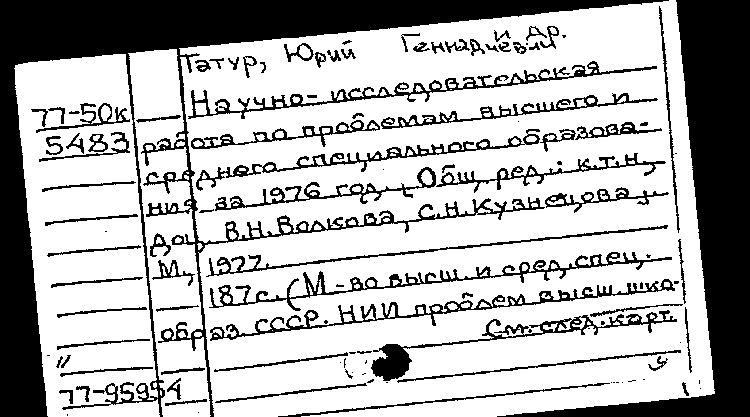 Татур, Юрий Геннадиевич и др.
77-50к Научно-исследовательская
5483 работа по проблемам высшего и
среднего специального образова-
ния за 1976 год. Общ. ред.: к.т.н.,
доц. В.Н.Волкова, С.Н.Кузнецова.
М., 1977.
187с. (М-во высш. и сред. спец.
образ. СССР. НИИ проблем высш. шко-
См. след. карт.
77-95954